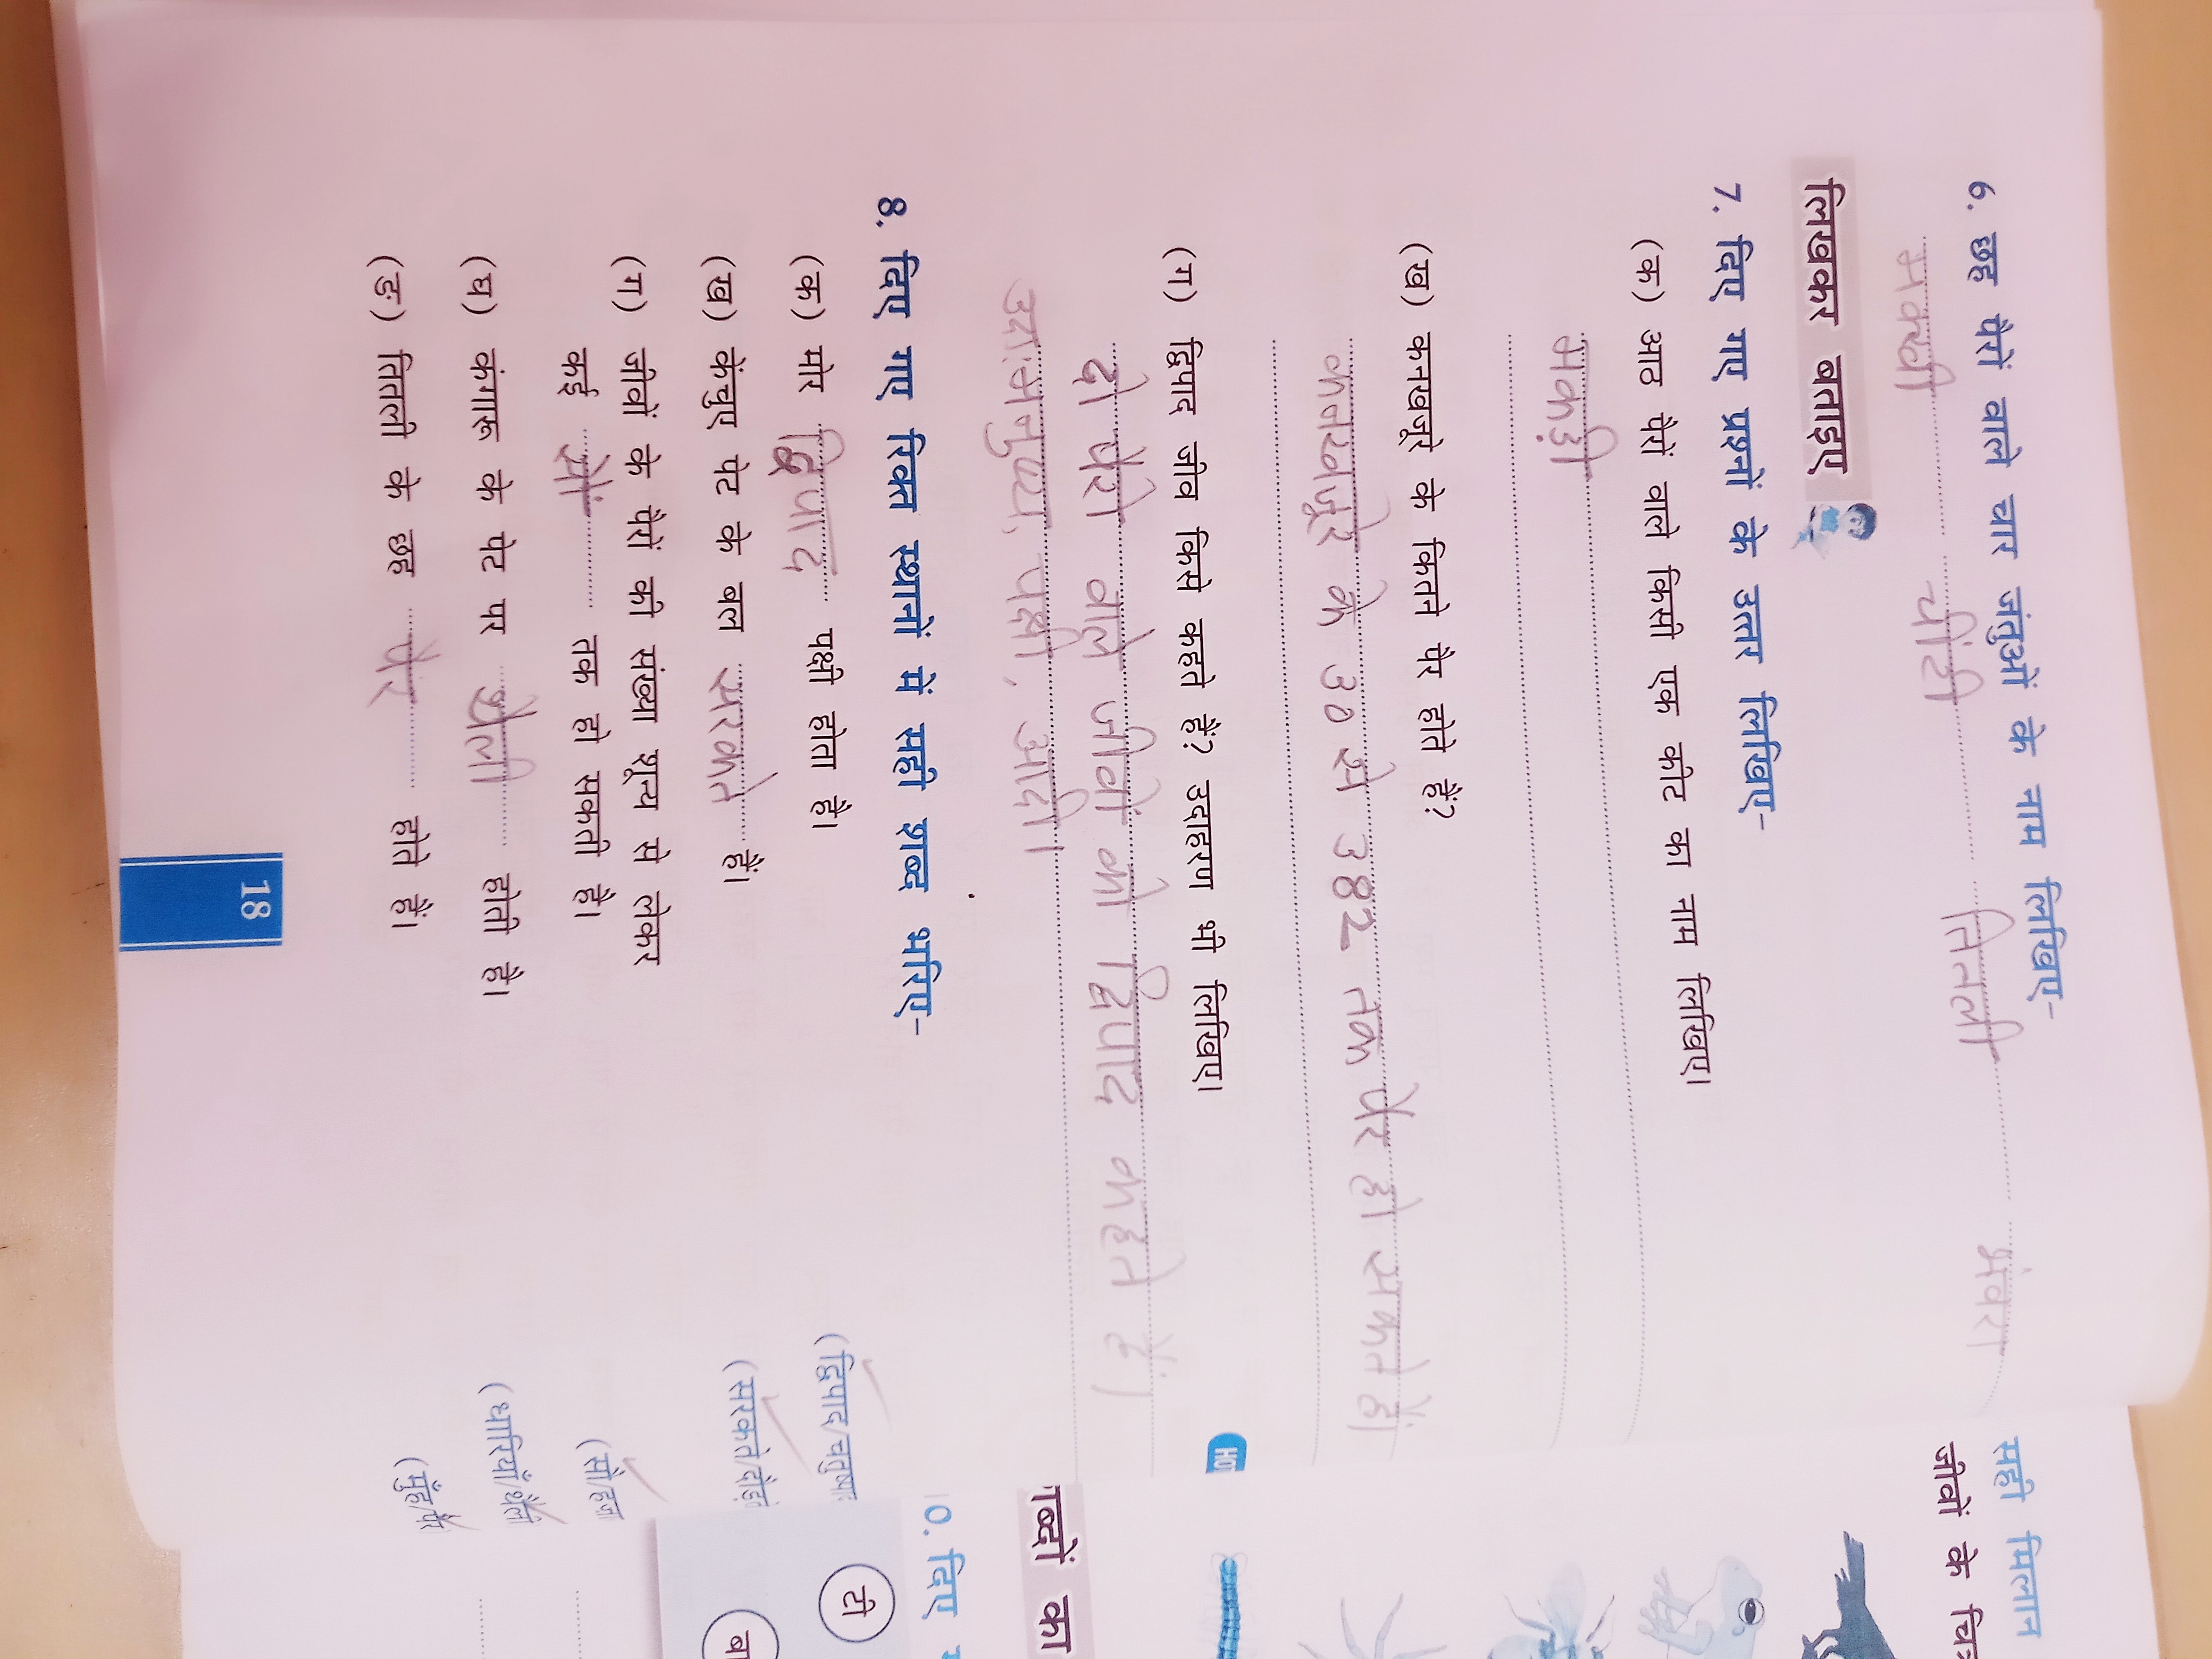 6. छह पैरों वाले चार जंतुओं के नाम लिखिए-
मक्खी चींटी तितली भंवरा
लिखकर बताइए
7. दिए गए प्रश्नों के उत्तर लिखिए-
(क) आठ पैरों वाले किसी एक कीट का नाम लिखिए।
मकड़ी
(ख) कनखजूरे के कितने पैर होते हैं?
कनखजूरे के 30 से 382 तक पैर हो सकते हैं।
(ग) द्विपाद जीव किसे कहते हैं? उदाहरण भी लिखिए।
दो पैरो वाले जीवों को द्विपाद कहते हैं।
मनुष्य, पक्षी, आदी।
8. दिए गए रिक्त स्थानों में सही शब्द भरिए-
(क) मोर द्विपाद पक्षी होता है। (द्विपाद/
(ख) केंचुए पेट के बल सरकते हैं। (सरकते/
(ग) जीवों के पैरों की संख्या शून्य से लेकर
कई सौ तक हो सकती है। (सौ/
(घ) कंगारू के पेट पर थैली होती है। (धारियाँ/
(ङ) तितली के छह पैर होते हैं। (मुँह/पैर
18
सही मिलान
जीवों के
HO
का
10. दिए
टी